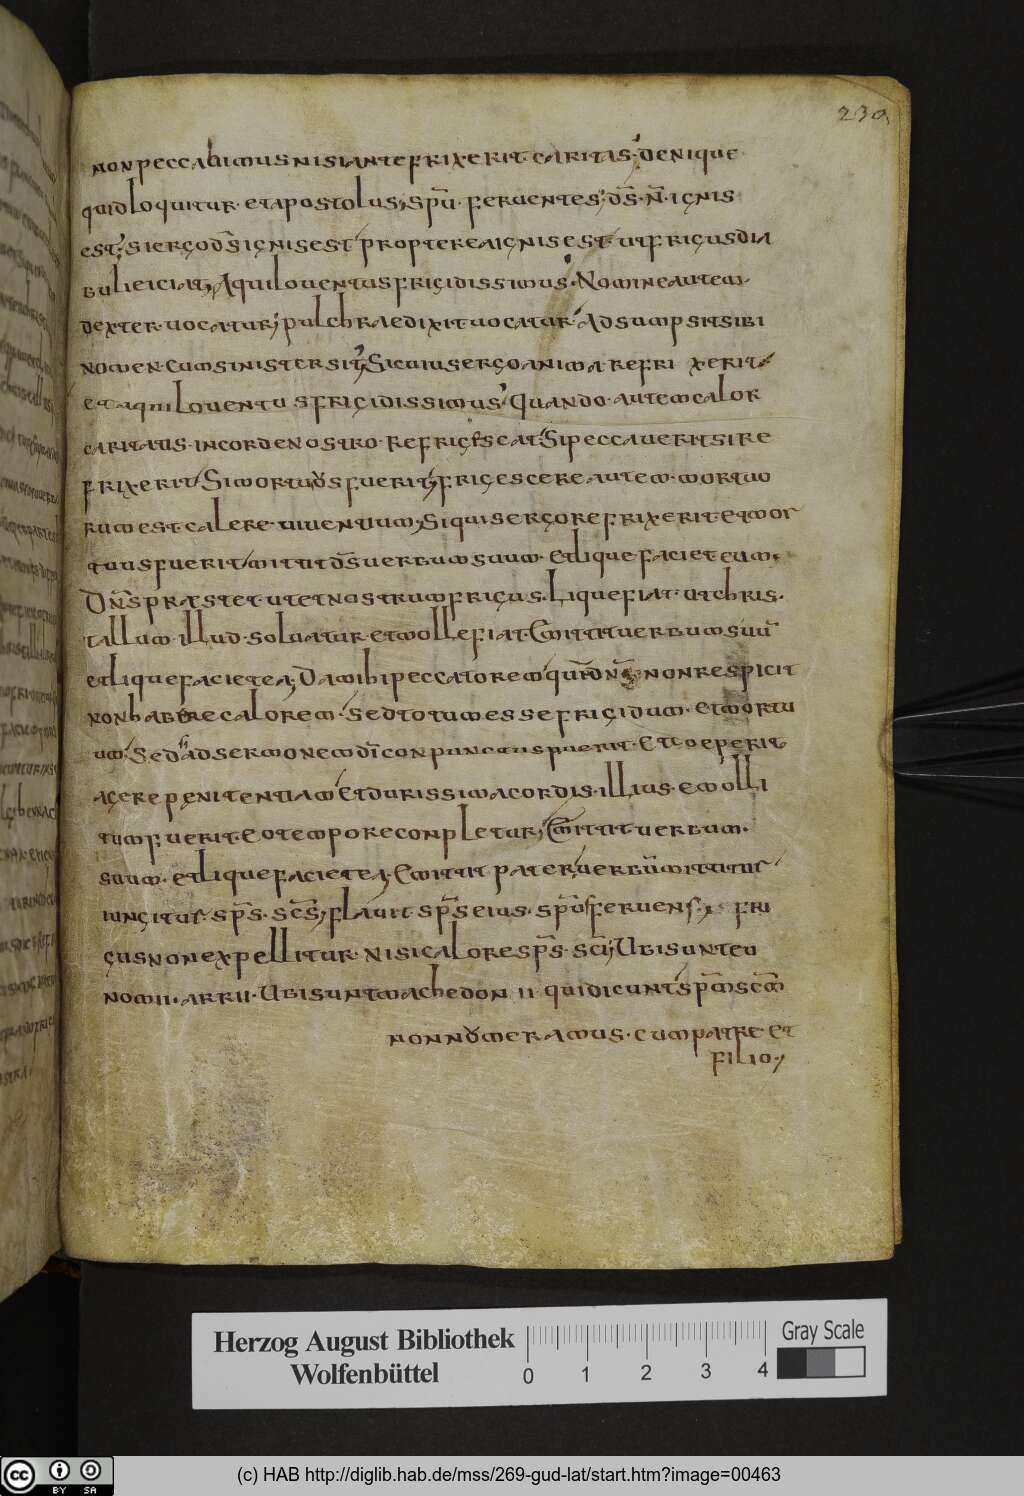 230
non peccabimus nisi ante frixerit caritas; denique
quid loquitur · et apostolus; spū · feruentes; d̄s · n̄ · ignis
est; si ergo d̄s ignis est propterea ignis est · ut frigus dia
buli eiciat; Aquilo uentus frigidissimus · Nomine autem
dexter · uocatur; pulchrae dixit uocatur · Adsumpsit sibi
nomen · cum sinister sit; Si cuius ergo anima refri xerit
et aquilo uentus frigidissimus; Quando · autem calor
caritatis · in corde nostro · refrigescat · Si peccauerit si re
frixerit · Si mortuus fuerit; frigescere · autem · mortuo
rum est calere · uiuentium; Si quis ergo refrixerit et mor
tuus fuerit mittit d̄s uerbum suum · et liquefaciet eum ·
Dn̄s praestet · ut et nostrum frigus · Liquefiat · ut chris ·
tallum · illud · soluatur · et molle fiat · Emittit uerbum suū
et liquefaciet ea; Da mihi peccatorem quem dn̄s non respicit
non habere calorem · Sed totum esse frigidum · et mortu
um · Sed ad sermonem dī conpunctus fuerit · Et coeperit
agere penitentiam · Et durissima cordis · illius · emolli
tum fuerit · eo tempore conpletur; Emittit uerbum ·
suum · et liquefaciet ea · Emittit pater; uerbū mittitur
iungitur · sp̄s · sc̄s; flauit sp̄s eius · spū feruens; fri
gus non expellitur · nisi calore sp̄s · sc̄i; Ubi sunt eu
nomii · arrii · Ubi sunt machedon ii qui dicunt sp̄m sc̄m
non numeramus · cum patre · et
filio;
Herzog August Bibliothek
Wolfenbüttel
0 1 2 3 4
Gray Scale
cc BY SA
(c) HAB http://diglib.hab.de/mss/269-gud-lat/start.htm?image=00463